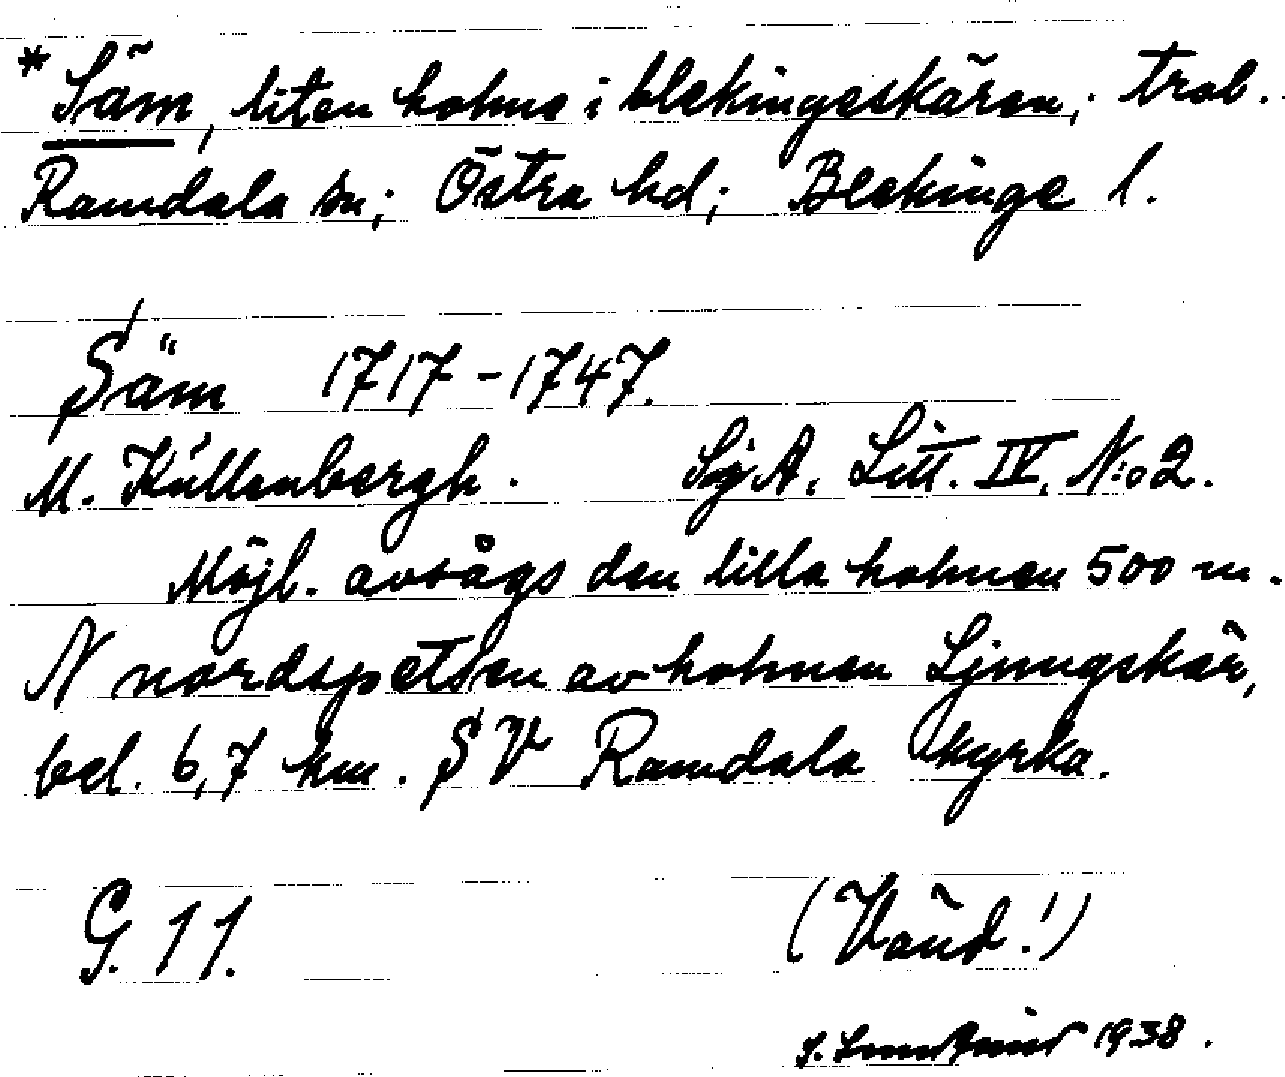 * Säm, liten holme i blekingeskären, trol.
Ramdala sn; Östra hd; Blekinge l.
Säm 1717-1747.
M. Kullenbergh. SjA. Litt. IV. N:o 2.
Möjl. avsågs den lilla holmen 500 m.
N nordspetsen av holmen Ljungskär,
bel. 6,7 km. SV Ramdala kyrka.
G. 11. (Vänd!)
1938.